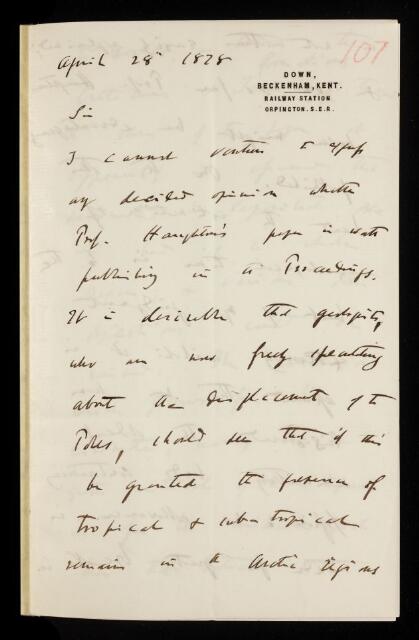 107
April 28th 1878
DOWN,
BECKENHAM, KENT.
RAILWAY STATION
ORPINGTON. S.E.R.
Sir
I cannot venture to express
any decided opinion whether
Prof. Haughton's paper is worth
publishing in the Proceedings.
It is desirable that geologists,
who are now freely speculating
about the displacement of the
Poles, should see that if this
be granted the presence of
tropical & sub-tropical
remains in the Arctic regions